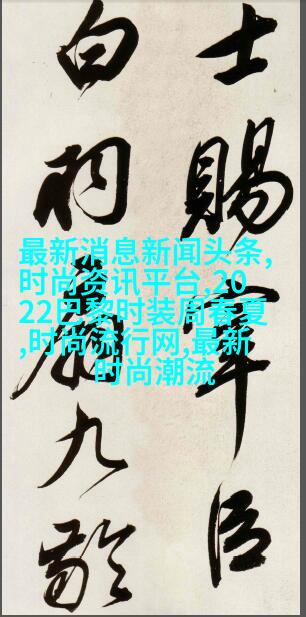 士賜宰臣
白羽扇九齡
最新消息新闻头条,
时尚资讯平台,20
22巴黎时装周春夏
,时尚流行网,最新
时尚潮流